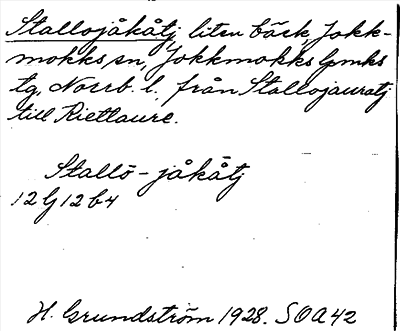 Stallojåkåtj, liten bäck, Jokk-
mokks sn, Jokkmokks lpmks
tg, Norrb. l. från Stallojauratj
till Rietlaure.
Stallō - jåkåtj
12 G 12 b 4
H. Grundström 1928. SOA 42